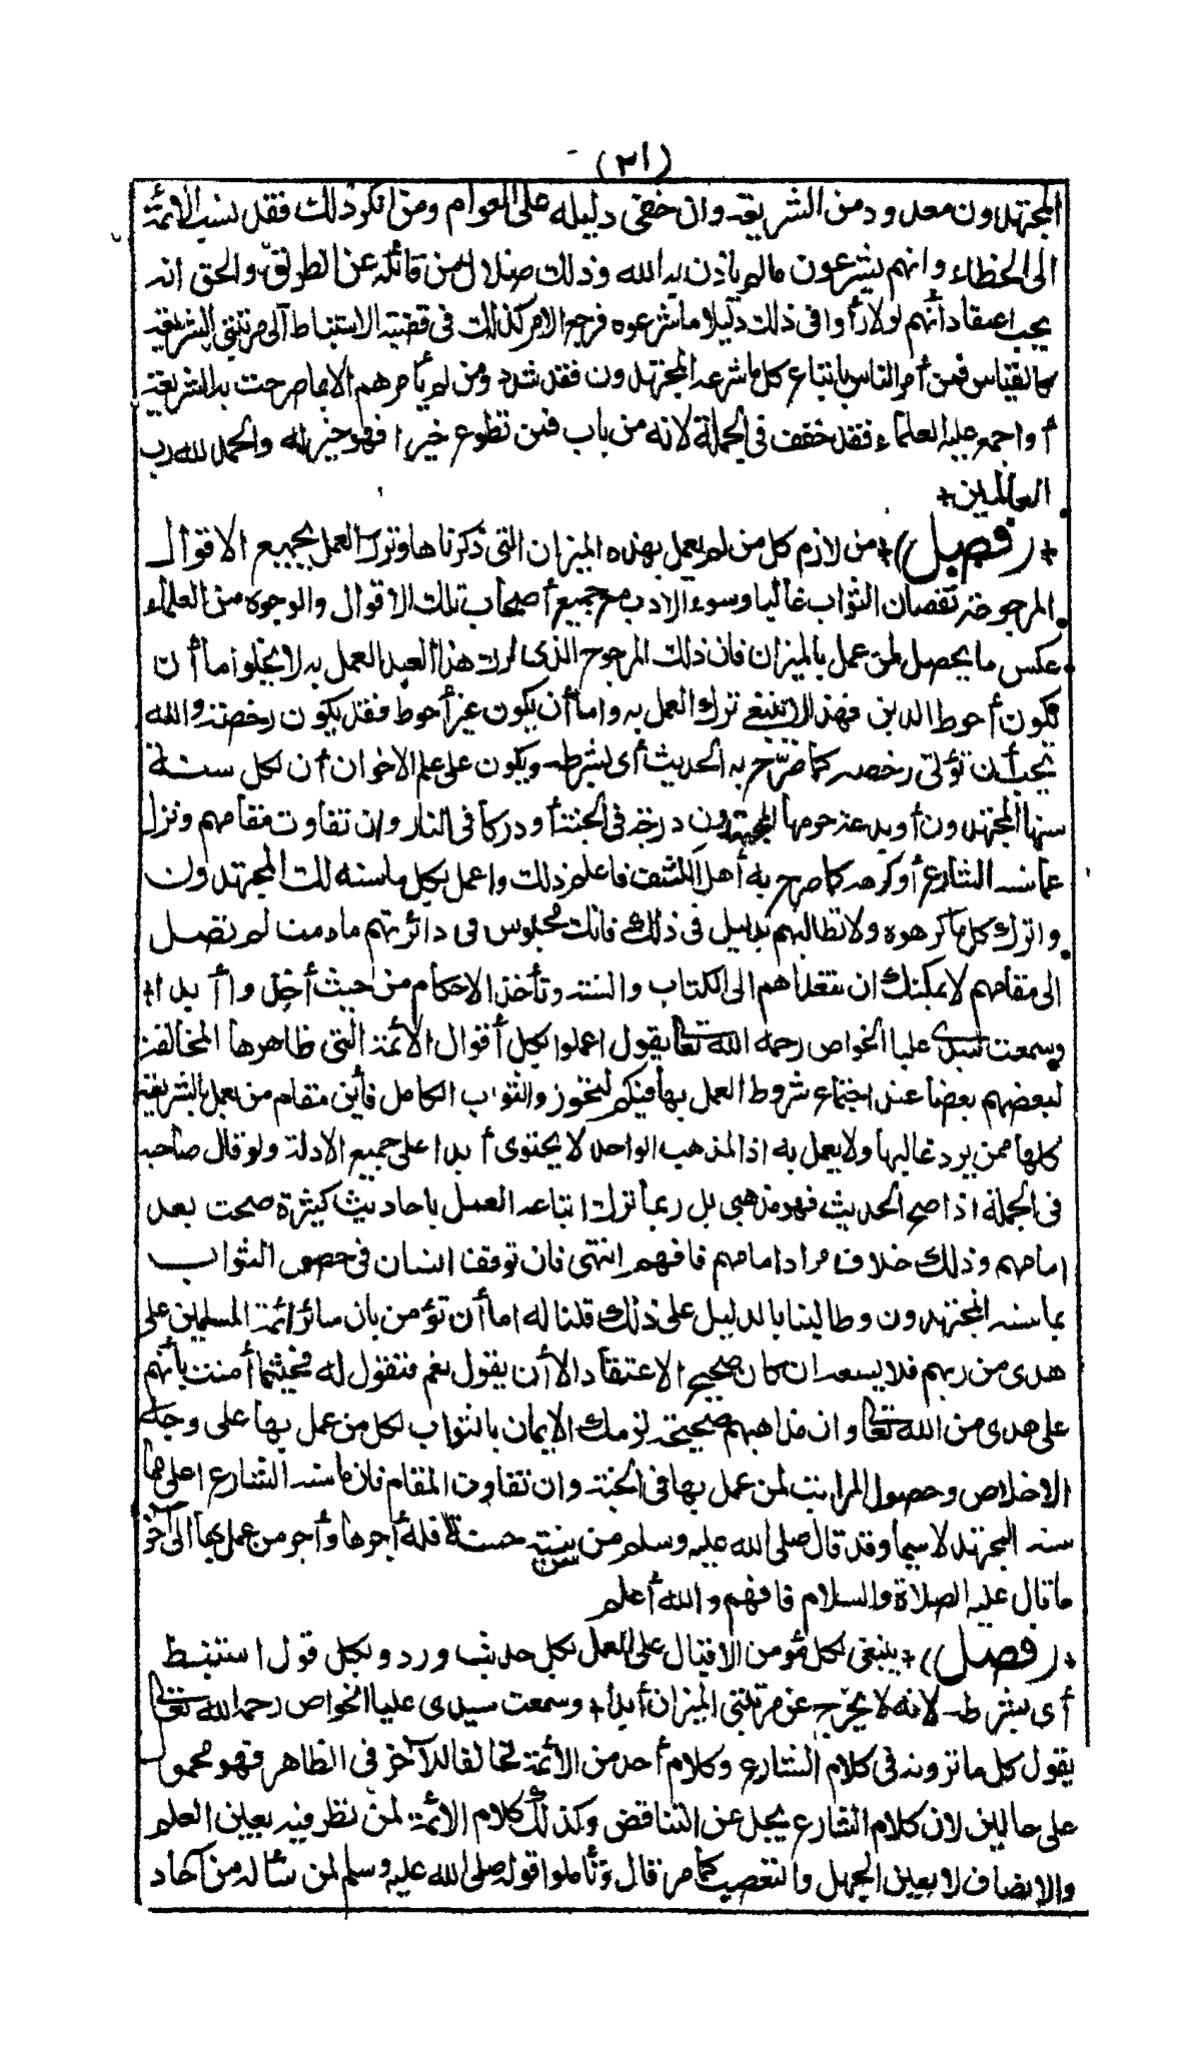 (٢١)
المجتهدون معدود من الشريعة وان خفى دليله على العوام ومن انكر ذلك فقد نسب الائمة
الى الخطاء وانهم يشرعون مالم ياذن به الله وذلك ضلال من قائله عن الطريق والحق انه
يجب اعتقاد أنهم لولا رأوا فى ذلك دليلا ما شرعوه فرجع الامر كذلك فى قضية الاستنباط الى مرتبتى الشريعة
كالقياس فمن أمر الناس باتباع كل ما شرعه المجتهدون فقد شدد ومن لم يأمرهم الا بما صرحت به الشريعة
أو اجمع عليه العلماء فقد خفف فى الجملة لانه من باب فمن تطوع خيرا فهو خير له والحمد لله رب
العالمين+
+(فصل)+ من لازم كل من لم يعمل بهذه الميزان التى ذكرناها وترك العمل بجميع الاقوال
المرجوحة نقصان الثواب غالبا وسوء الادب مع جميع أصحاب تلك الاقوال والوجوه من العلماء
عكس ما يحصل لمن عمل بالميزان فان ذلك المرجوح الذى ترك هذا العبد العمل به لا يخلو اما أن
يكون أحوط للدين فهذا لا ينبغى ترك العمل به واما أن يكون غير أحوط فقد يكون رخصة والله
يحب أن تؤتى رخصه كما صرّح به الحديث أى بشرطه ويكون على علم الاخوان أن لكل سنة
سنها المجتهدون أو بدعة حرمها المجتهدون درجة فى الجنة أو دركا فى النار وان تفاوت مقامهم ونزل
عما سنه الشارع أو كرهه كما صرح به أهل الكشف فاعلم ذلك واعمل بكل ما سنه لك المجتهدون
واترك كل ما كرهوه ولا تطالبهم بدليل فى ذلك فانك محبوس فى دائرتهم ما دمت لم تصل
الى مقامهم لا يمكنك ان تتعداهم الى الكتاب والسنة وتأخذ الاحكام من حيث أخذوا أبدا+
وسمعت سيدى عليا الخواص رحمه الله تعالى يقول اعملوا بكل أقوال الأئمة التى ظاهرها المخالفة
لبعضهم بعضا عند اجتماع شروط العمل بها فيكم لتحوزوا الثواب الكامل فأين مقام من يعمل بالشريعة
كلها ممن يرد غالبها ولا يعمل به اذ المذهب الواحد لا يحتوى أبدا على جميع الادلة ولو قال صاحبه
فى الجملة اذا صح الحديث فهو مذهبى بل ربما ترك اتباعه العمل باحاديث كثيرة صحت بعد
امامهم وذلك خلاف مراد امامهم فافهم انتهى فان توقف انسان فى حصول الثواب
بما سنه المجتهدون وطالبنا بالدليل على ذلك قلنا له اما أن تؤمن بان سائر ائمة المسلمين على
هدى من ربهم فلا يسعه ان كان صحيح الاعتقاد الا أن يقول نعم فنقول له فحيثما أمنت بأنهم
على هدى من الله تعالى وان مذاهبهم صحيحة لزمك الايمان بالثواب لكل من عمل بها على وجه
الاخلاص وحصول المراتب لمن عمل بها فى الجنة وان تفاوت المقام فان ما سنه الشارع اعلى مما
سنه المجتهد لاسيما وقد قال صلى الله عليه وسلم من سنّ سنة حسنة فله أجرها وأجر من عمل بها الى آخر
ما قال عليه الصلاة والسلام فافهم والله أعلم
+(فصل)+ ينبغى لكل مؤمن الاقبال على العمل بكل حديث ورد وبكل قول استنبط
أى بشرطه لانه لا يخرج عن مرتبتى الميزان أبدا+ وسمعت سيدى عليا الخواص رحمه الله تعالى
يقول كل ما ترونه فى كلام الشارع وكلام أحد من الأئمة مخالفا للآخر فى الظاهر فهو محمول
على حالين لان كلام الشارع يجل عن التناقض وكذلك كلام الأئمة لمن نظر فيه بعين العلم
والانصاف لا بعين الجهل والتعصب كما مر قال وتأملوا قوله صلى الله عليه وسلم لمن سأله من آحاد